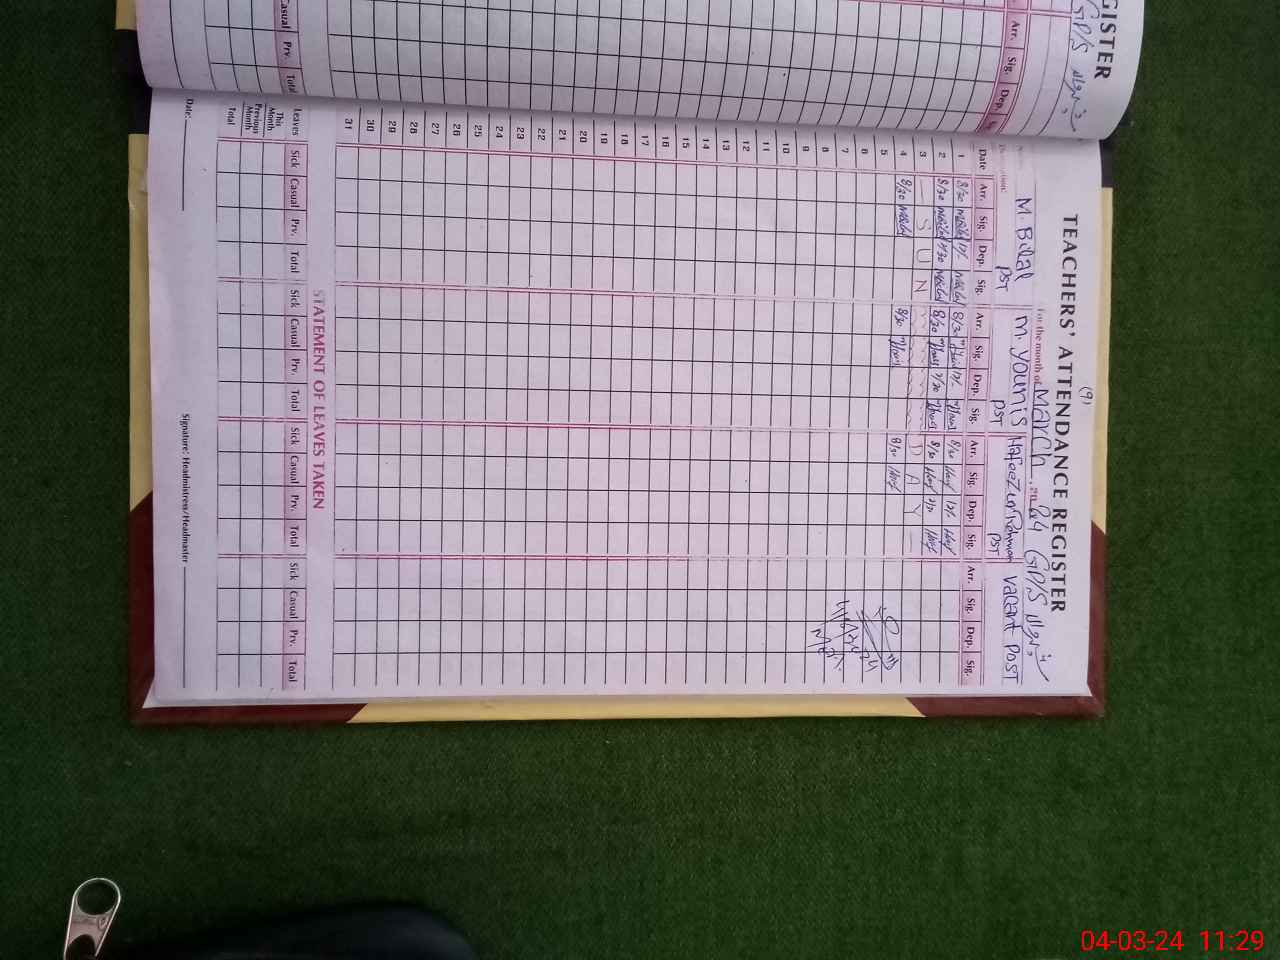 GISTER
GP/S
Arr. Sig. Dep.
Casual Prv. Total
(9)
TEACHERS' ATTENDANCE REGISTER
For the month of March, 2024 GP/S
M. Bilal M. Younis Hafeez ur Rehman Vacant Post
PST PST PST
Date Arr. Sig. Dep. Sig. Arr. Sig. Dep. Sig. Arr. Sig. Dep. Sig. Arr. Sig. Dep. Sig.
1 8/30 12/- 8/30 12/- 8/30 12/-
2 8/30 2/30 8/30 2/30 8/30 2/30
3 — S U N D A Y —
4 8/30 8/30 8/30
5
6
7
8
9
10
11
12
13
14
15
16
17
18
19
20
21
22
23
24
25
26
27
28
29
30
31
STATEMENT OF LEAVES TAKEN
Leaves Sick Casual Prv. Total Sick Casual Prv. Total Sick Casual Prv. Total Sick Casual Prv. Total
This Month
Previous Month
Total
Date: Signature: Headmistress/Headmaster
04-03-24 11:29